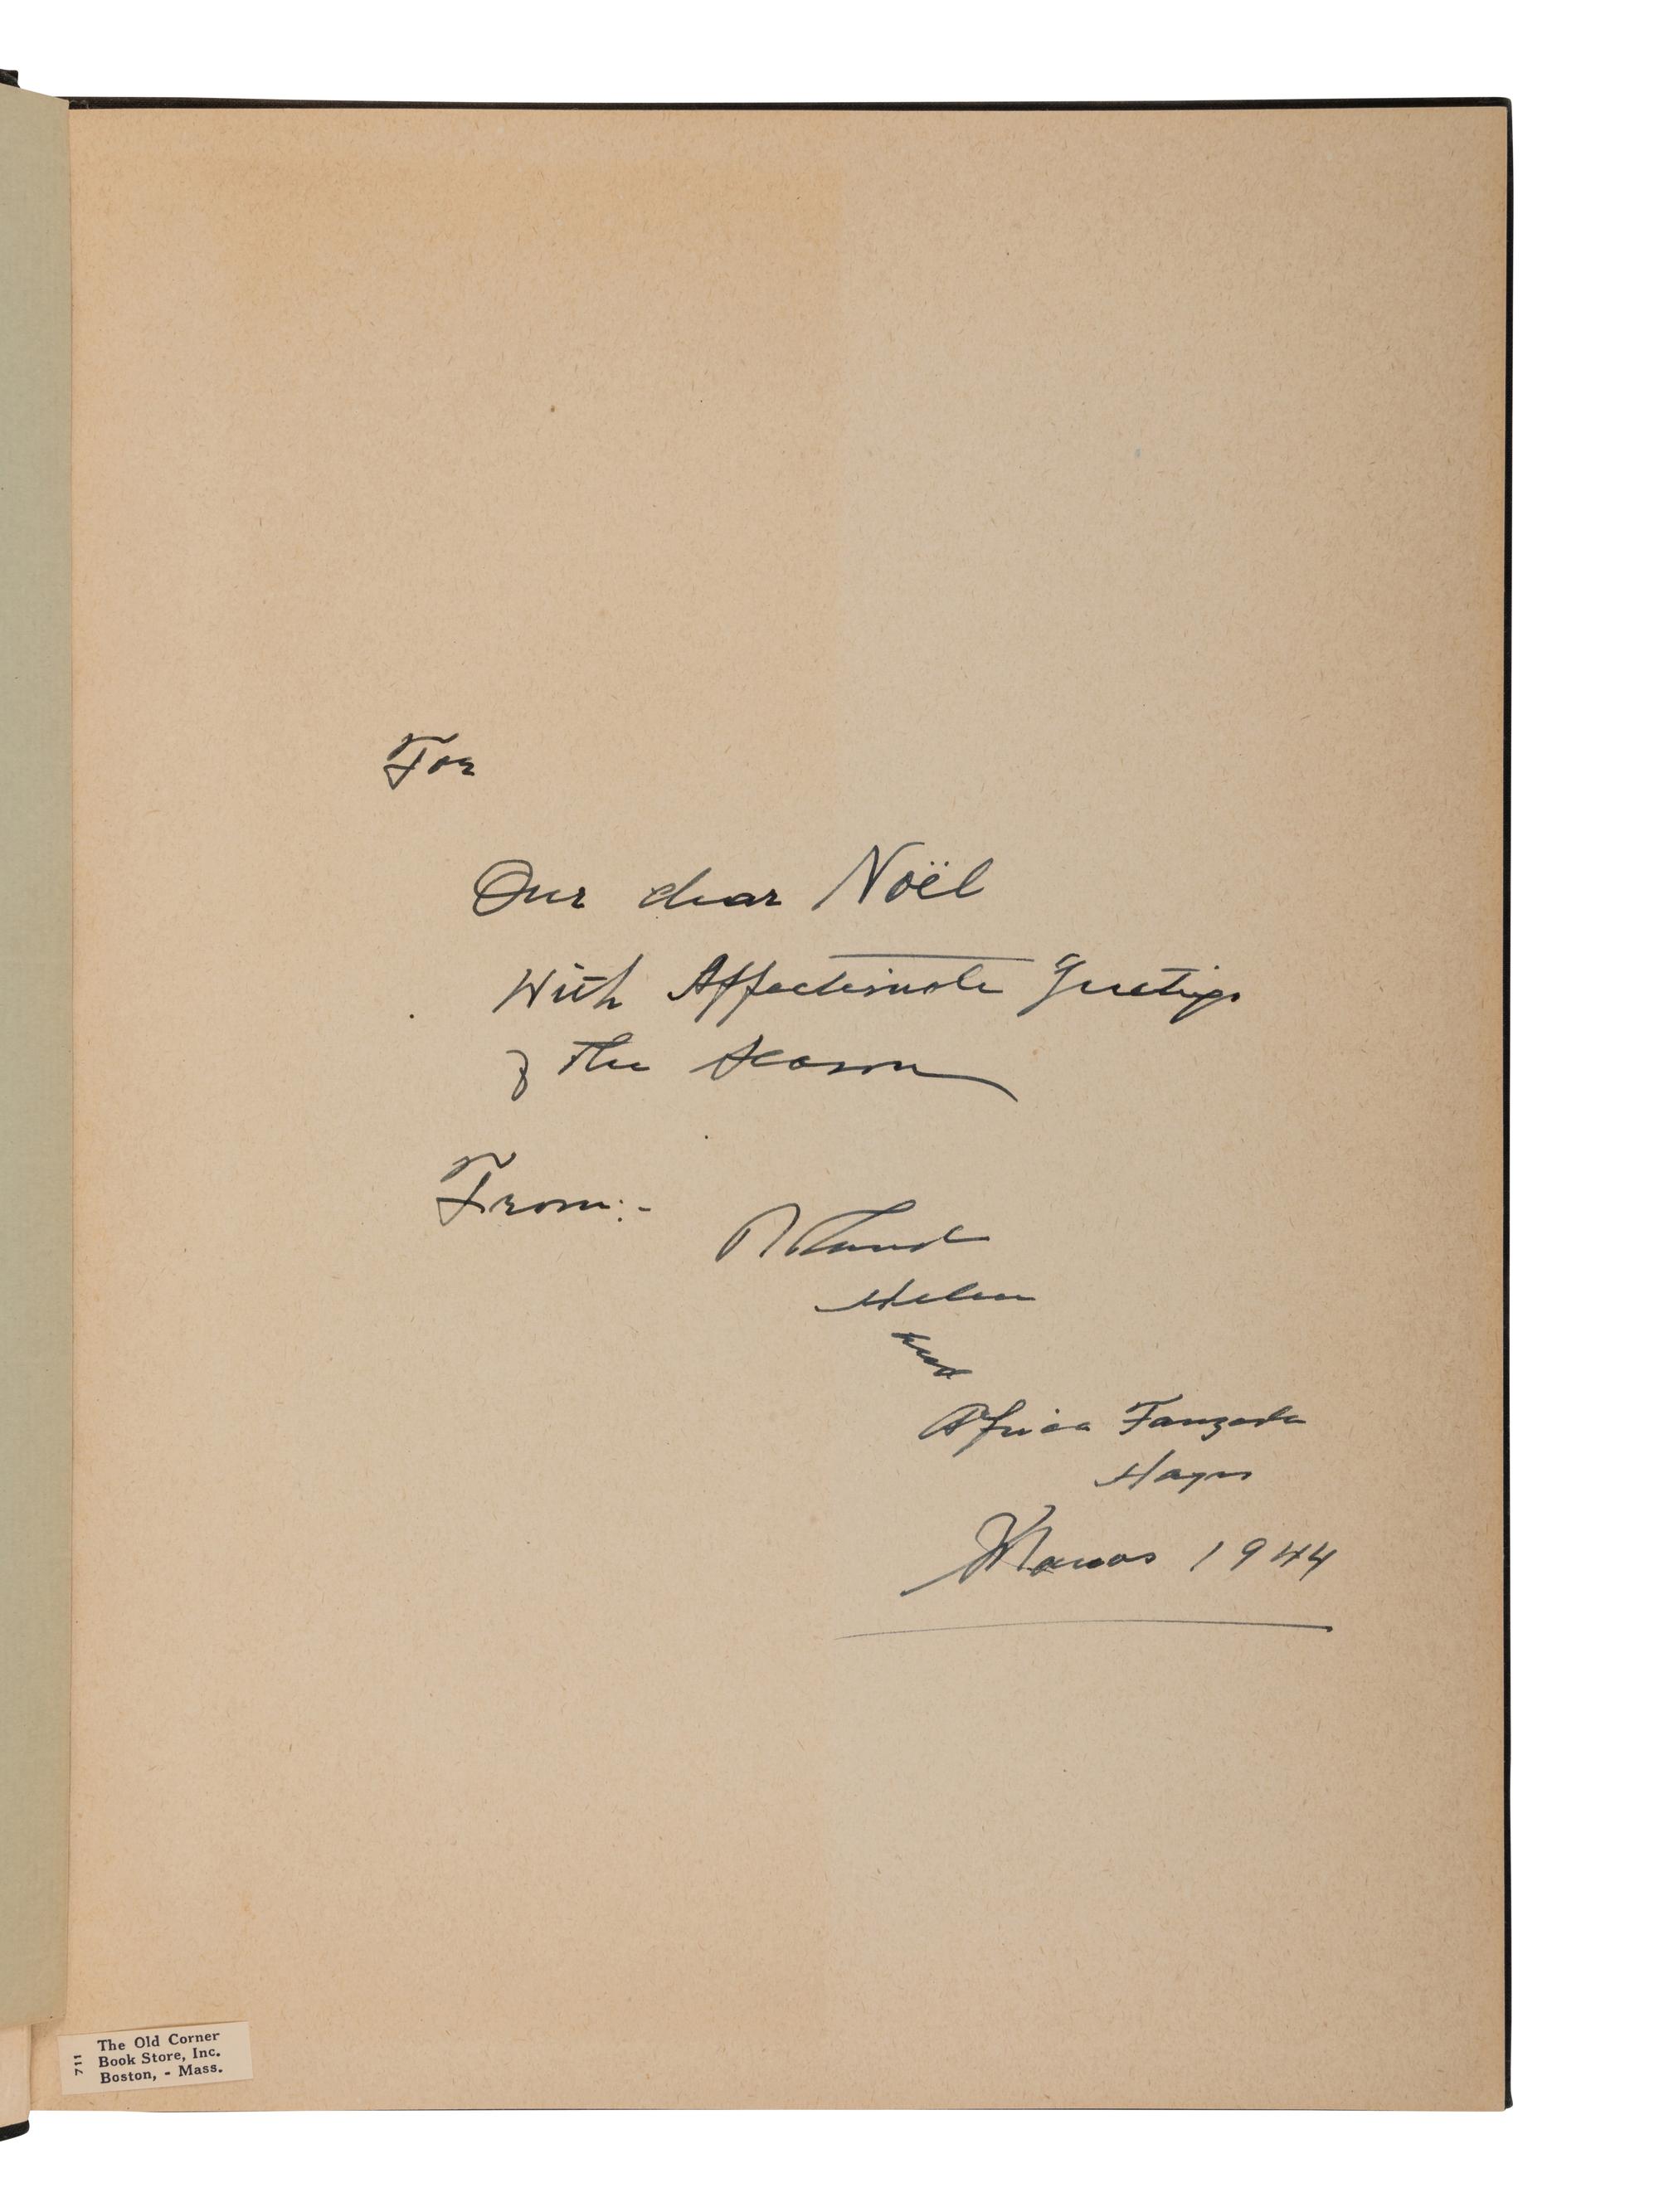 For
Our dear Noël
With Affectionate Greetings
of The Season
From:-
Roland
Helen
and
Africa Fanzada
Hayes
Xmas 1944
711
The Old Corner
Book Store, Inc.
Boston, - Mass.